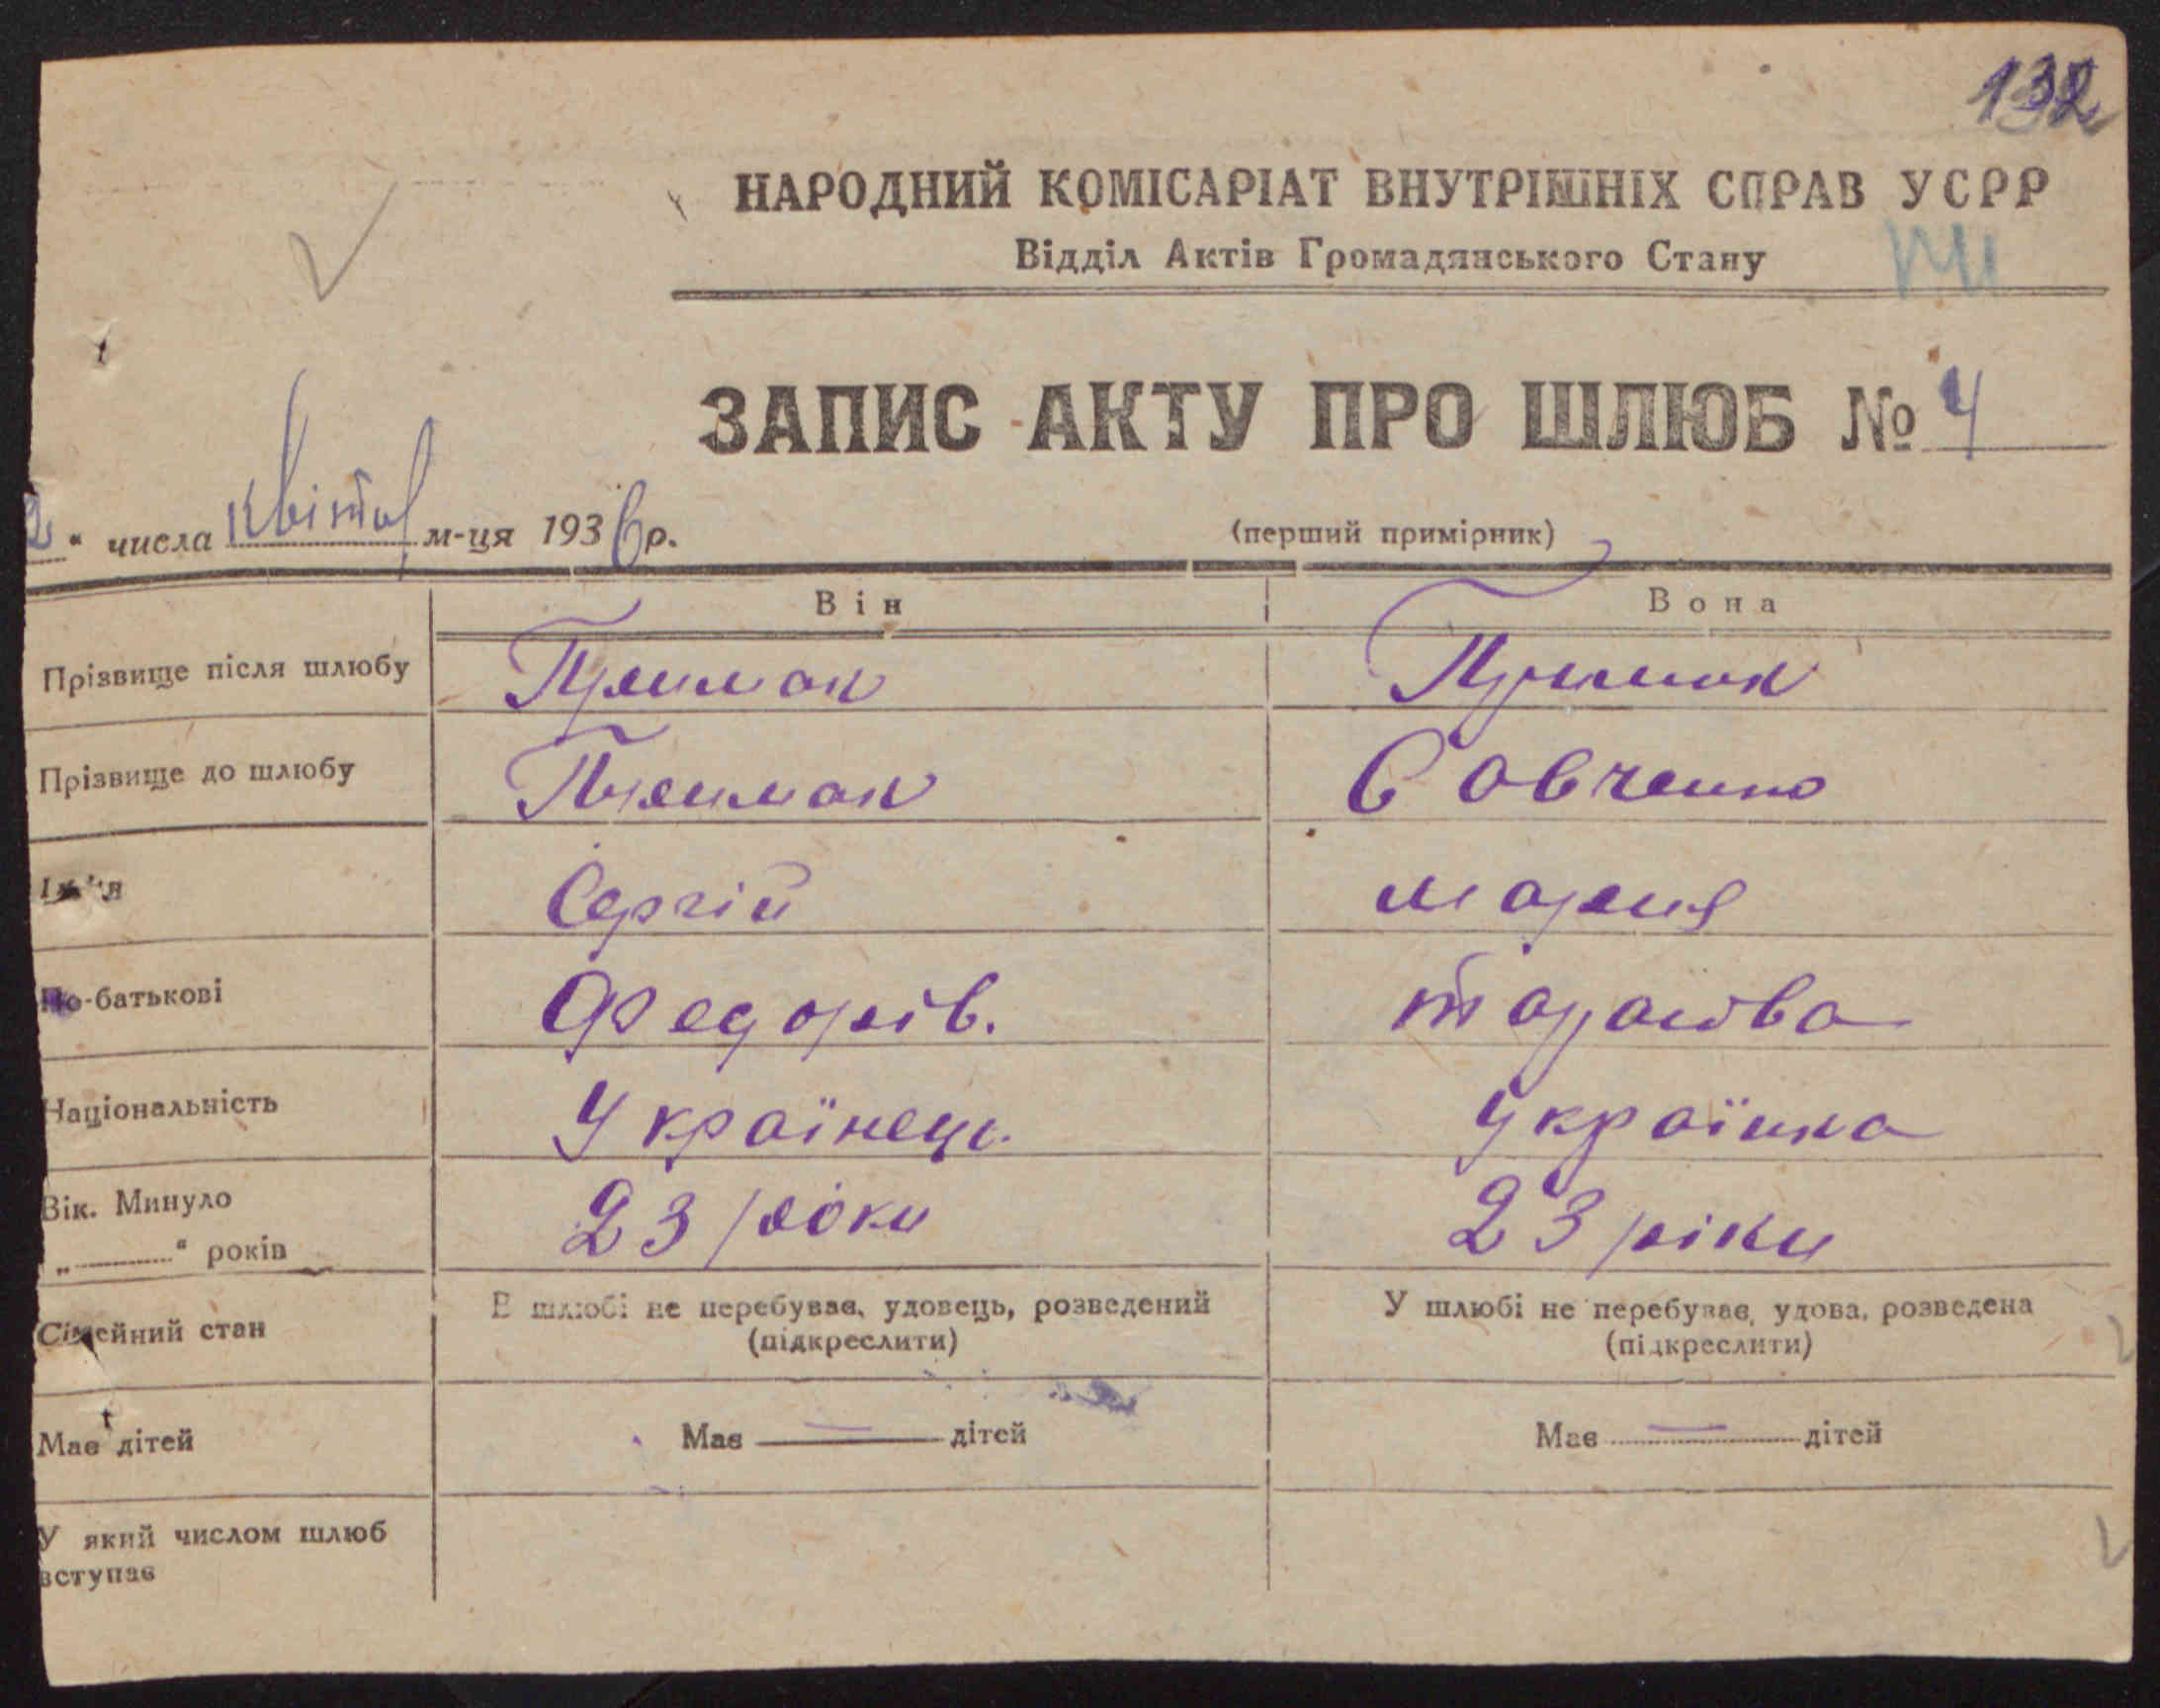 132
НАРОДНИЙ КОМІСАРІАТ ВНУТРІШНІХ СПРАВ УСРР
Відділ Актів Громадянського Стану
ЗАПИС АКТУ ПРО ШЛЮБ № 4
2 " числа квітня м-ця 1936 р.
(перший примірник)
Він Вона
Прізвище після шлюбу Примак Примак
Прізвище до шлюбу Примак Совченко
Ім'я Сергій Мария
По-батькові Федорів. Тарасова
Національність Українець Українка
Вік. Минуло
„ " років 23 роки 23 ріки
Сімейний стан В шлюбі не перебував, удовець, розведений У шлюбі не перебував, удова, розведена
(підкреслити) (підкреслити)
Має дітей Має — дітей Має — дітей
У який числом шлюб
вступає